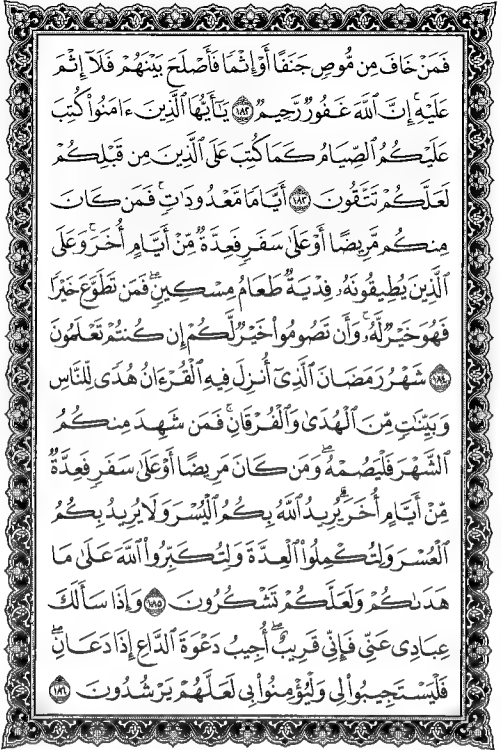 فَمَنْ خَافَ مِن مُّوصٍ جَنَفًا أَوْ إِثْمًا فَأَصْلَحَ بَيْنَهُمْ فَلَآ إِثْمَ
عَلَيْهِ ۚ إِنَّ ٱللَّهَ غَفُورٌ رَّحِيمٌ ١٨٢ يَـٰٓأَيُّهَا ٱلَّذِينَ ءَامَنُوا۟ كُتِبَ
عَلَيْكُمُ ٱلصِّيَامُ كَمَا كُتِبَ عَلَى ٱلَّذِينَ مِن قَبْلِكُمْ
لَعَلَّكُمْ تَتَّقُونَ ١٨٣ أَيَّامًا مَّعْدُودَٰتٍ ۚ فَمَن كَانَ
مِنكُم مَّرِيضًا أَوْ عَلَىٰ سَفَرٍ فَعِدَّةٌ مِّنْ أَيَّامٍ أُخَرَ ۚ وَعَلَى
ٱلَّذِينَ يُطِيقُونَهُۥ فِدْيَةٌ طَعَامُ مِسْكِينٍ ۖ فَمَن تَطَوَّعَ خَيْرًا
فَهُوَ خَيْرٌ لَّهُۥ ۚ وَأَن تَصُومُوا۟ خَيْرٌ لَّكُمْ ۖ إِن كُنتُمْ تَعْلَمُونَ
١٨٤ شَهْرُ رَمَضَانَ ٱلَّذِىٓ أُنزِلَ فِيهِ ٱلْقُرْءَانُ هُدًى لِّلنَّاسِ
وَبَيِّنَـٰتٍ مِّنَ ٱلْهُدَىٰ وَٱلْفُرْقَانِ ۚ فَمَن شَهِدَ مِنكُمُ
ٱلشَّهْرَ فَلْيَصُمْهُ ۖ وَمَن كَانَ مَرِيضًا أَوْ عَلَىٰ سَفَرٍ فَعِدَّةٌ
مِّنْ أَيَّامٍ أُخَرَ ۗ يُرِيدُ ٱللَّهُ بِكُمُ ٱلْيُسْرَ وَلَا يُرِيدُ بِكُمُ
ٱلْعُسْرَ وَلِتُكْمِلُوا۟ ٱلْعِدَّةَ وَلِتُكَبِّرُوا۟ ٱللَّهَ عَلَىٰ مَا
هَدَىٰكُمْ وَلَعَلَّكُمْ تَشْكُرُونَ ١٨٥ وَإِذَا سَأَلَكَ
عِبَادِى عَنِّى فَإِنِّى قَرِيبٌ ۖ أُجِيبُ دَعْوَةَ ٱلدَّاعِ إِذَا دَعَانِ ۖ
فَلْيَسْتَجِيبُوا۟ لِى وَلْيُؤْمِنُوا۟ بِى لَعَلَّهُمْ يَرْشُدُونَ ١٨٦